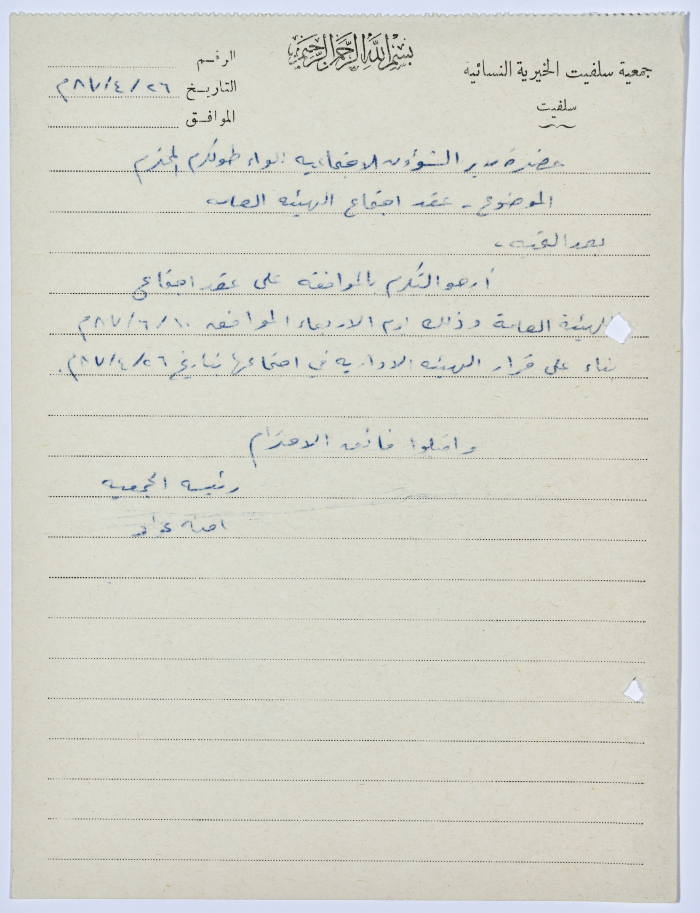 بسم الله الرحمن الرحيم
جمعية سلفيت الخيرية النسائيه
سلفيت
الرقم
التاريخ ٢٦/٤/٨٧م
الموافق
حضرة مدير الشؤون الاجتماعيه لواء طولكرم المحترم
الموضوع - عقد اجتماع الهيئه العامه
بعد التحيه -
أرجو التكرم بالموافقه على عقد اجتماع
الهيئة العامة وذلك يوم الاربعاء الموافق ١٠/٦/٨٧م
بناء على قرار الهيئه الاداريه في اجتماعها بتاريخ ٢٦/٤/٨٧م.
واقبلوا فائق الاحترام
رئيسه الجمعيه